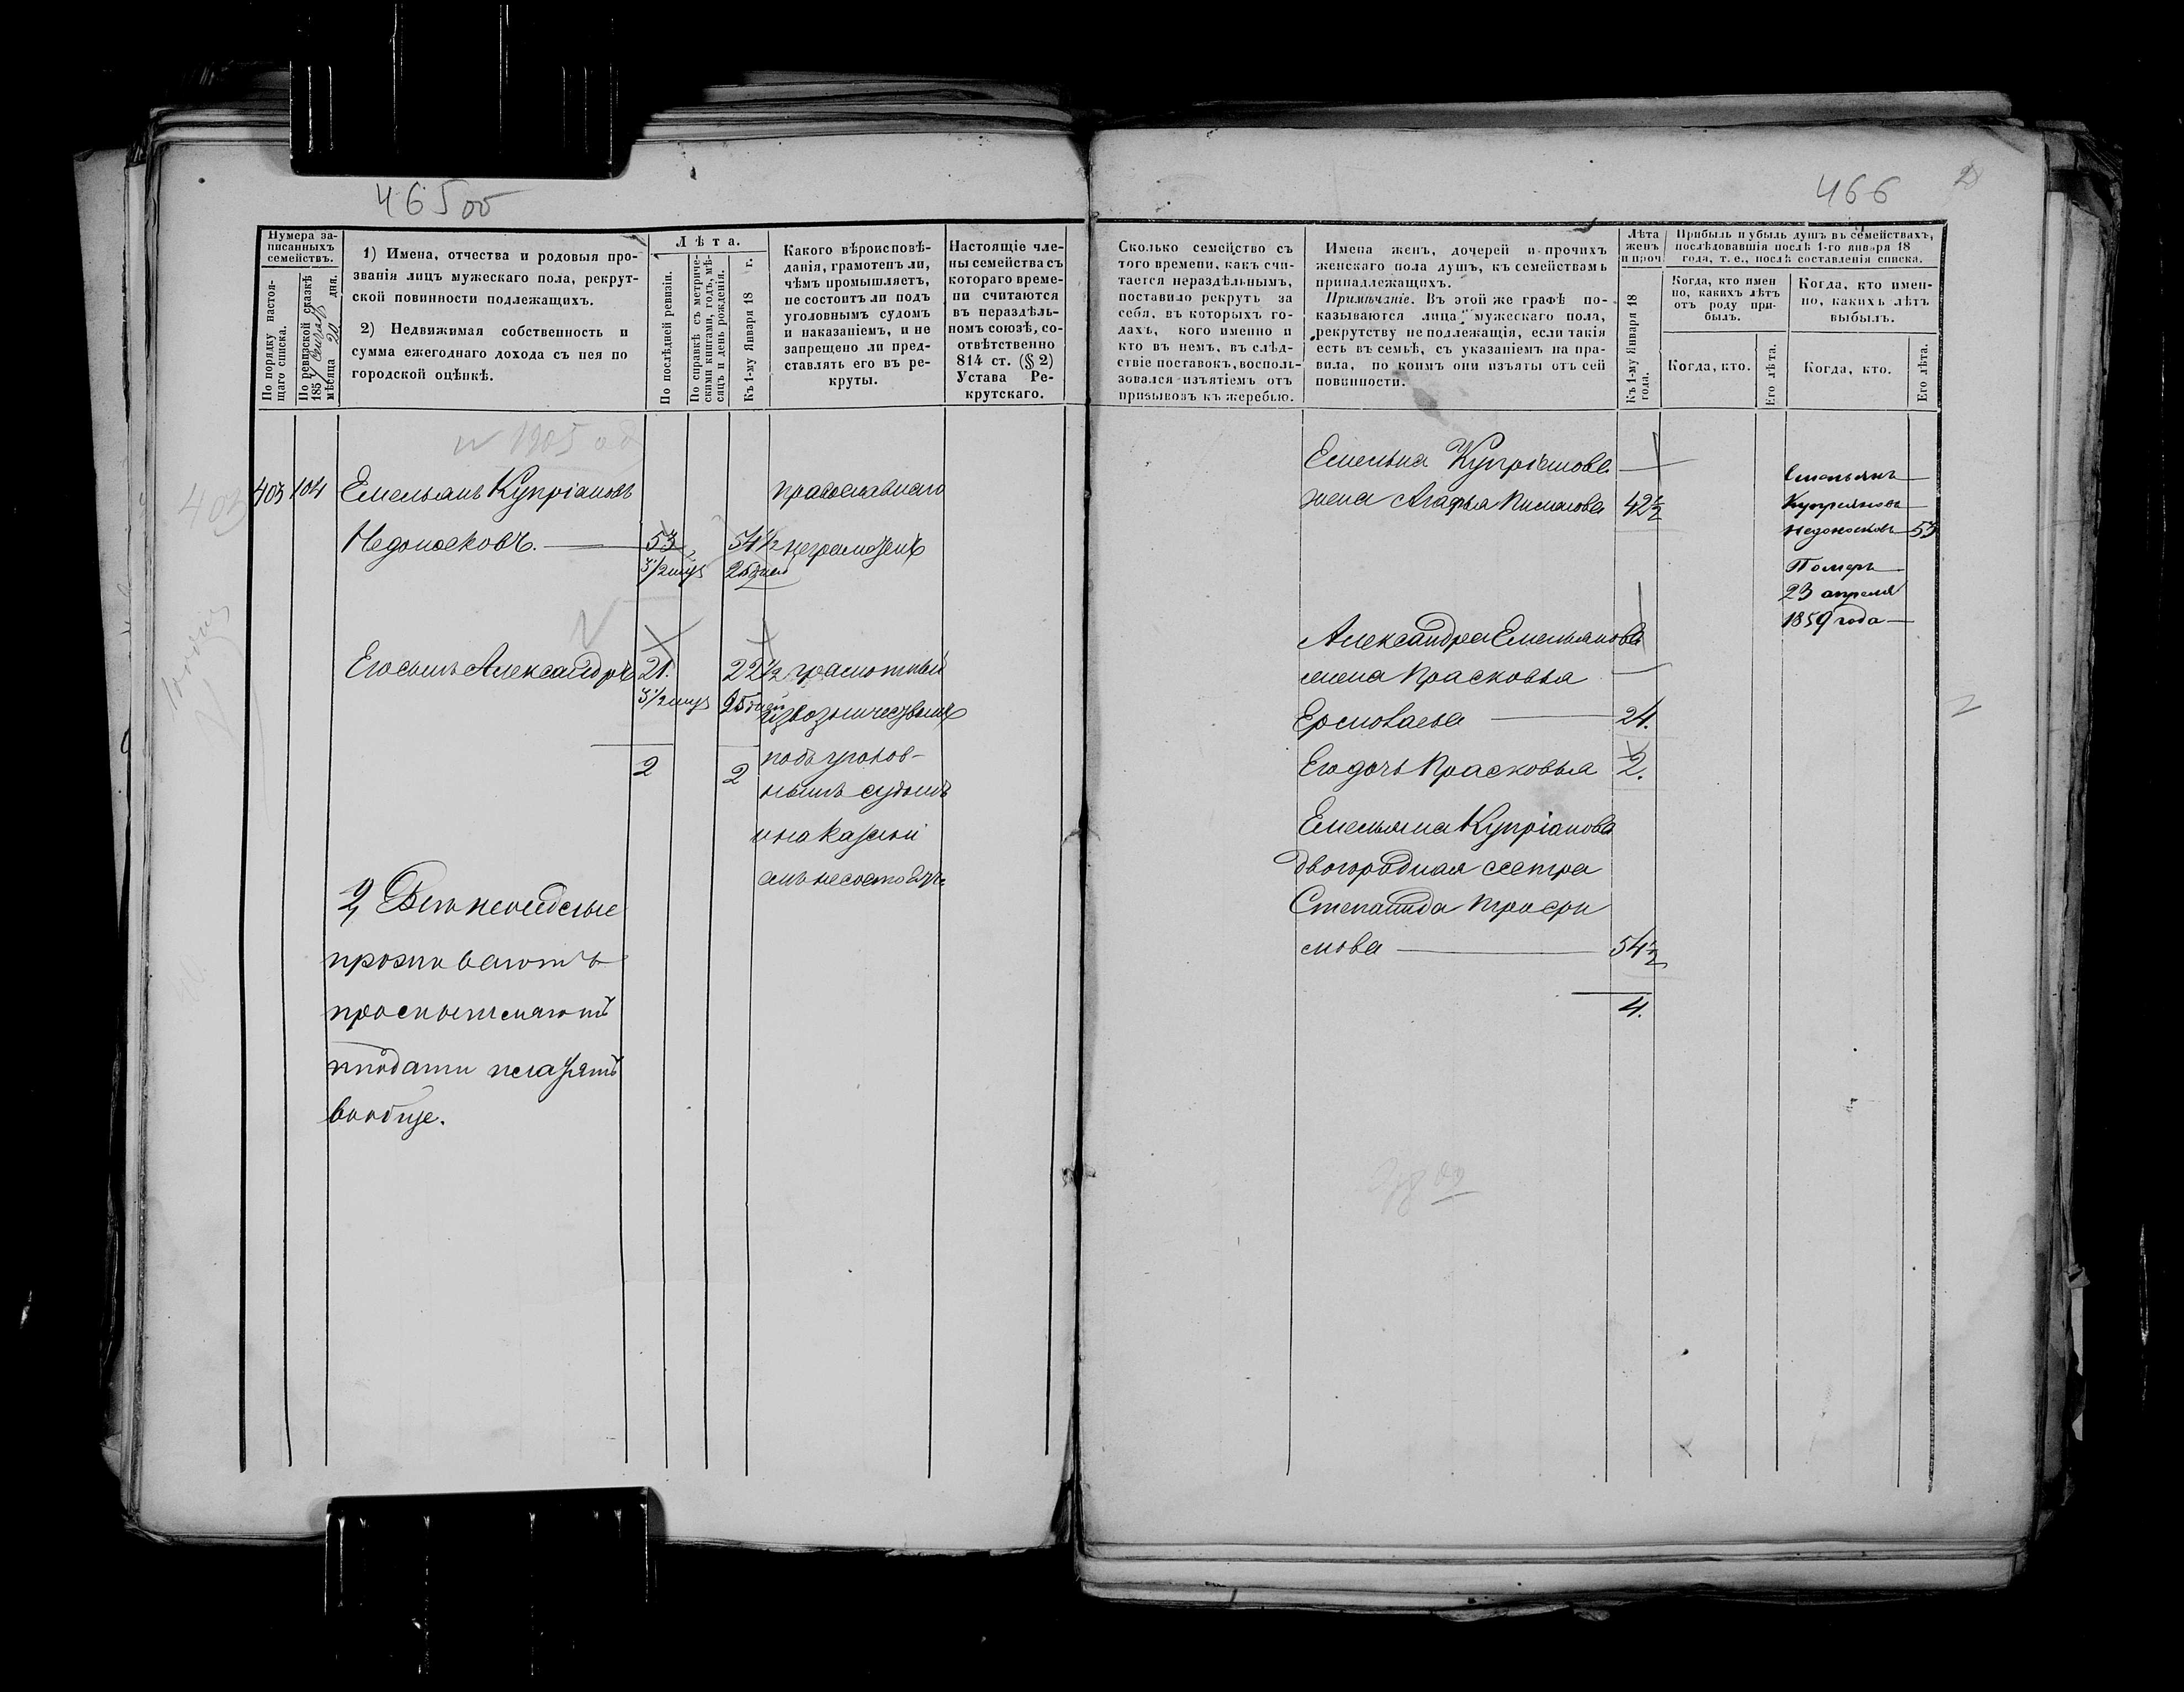 465 об
Нумера записанныхъ семействъ.
По порядку настоящаго списка.
По ревизской сказкѣ 185 мѣсяца 20 дня.
1) Имена, отчества и родовыя про-
званія лицъ мужескаго пола, рекрут-
ской повинности подлежащихъ.
2) Недвижимая собственность и
сумма ежегоднаго дохода съ нея по
городской оцѣнкѣ.
Лѣта.
По послѣдней ревизіи.
По справкѣ съ метриче-
скими книгами, годъ, мѣ-
сяцъ и день рожденія.
Къ 1-му Января 18 г.
Какого вѣроисповѣ-
данія, грамотенъ ли,
чѣмъ промышляетъ,
не состоитъ ли подъ
уголовнымъ судомъ
и наказаніемъ, и не
запрещено ли пред-
ставлять его въ ре-
круты.
Настоящіе чле-
ны семейства съ
котораго време-
ни считаются
въ нераздѣль-
номъ союзѣ, со-
отвѣтственно
814 ст. (§ 2)
Устава Ре-
крутскаго.
403 104 Емельянъ Купріановъ православнаго
Недоносковъ. 53 54 1/2 неграмотенъ
Его сынъ Александръ 21. 22 1/2 грамотный
25 дней
2 2 подъ уголов-
нымъ судомъ
и наказані
емъ не состоятъ
2,
проживаютъ
подати платятъ
вообще.
466
Сколько семейство съ
того времени, какъ счи-
тается нераздѣльнымъ,
поставило рекрутъ за
себя, въ которыхъ го-
дахъ, кого именно и
кто въ немъ, въ слѣд-
ствіе поставокъ, восполь-
зовался изъятіемъ отъ
призывовъ къ жеребью.
Имена женъ, дочерей и прочихъ
женскаго пола душъ, къ семействамъ
принадлежащихъ.
Примѣчаніе. Въ этой же графѣ по-
казываются лица мужескаго пола,
рекрутству не подлежащія, если такія
есть въ семьѣ, съ указаніемъ на пра-
вила, по коимъ они изъяты отъ сей
повинности.
Лѣта
женъ
и проч
Къ 1-му Января 18
года.
Прибыль и убыль душъ въ семействахъ,
послѣдовавшія послѣ 1-го января 18
года, т. е., послѣ составленія списка.
Когда, кто имен
но, какихъ лѣтъ
отъ роду при-
былъ.
Когда, кто.
Его лѣта.
Когда, кто имен-
но, какихъ лѣтъ
выбылъ.
Когда, кто.
Его лѣта.
Емельяна Купріанова
жена Агафья 42 1/2
Александра Емельянова
жена Прасковья
24.
Его дочь Прасковья 2.
Емельяна Купріанова
двоюродная сестра
Степанида Трофи
мова 54 1/2
4.
Емельянъ
Купреяновъ
Недоносковъ 53
Померъ
23 апреля
1859 года